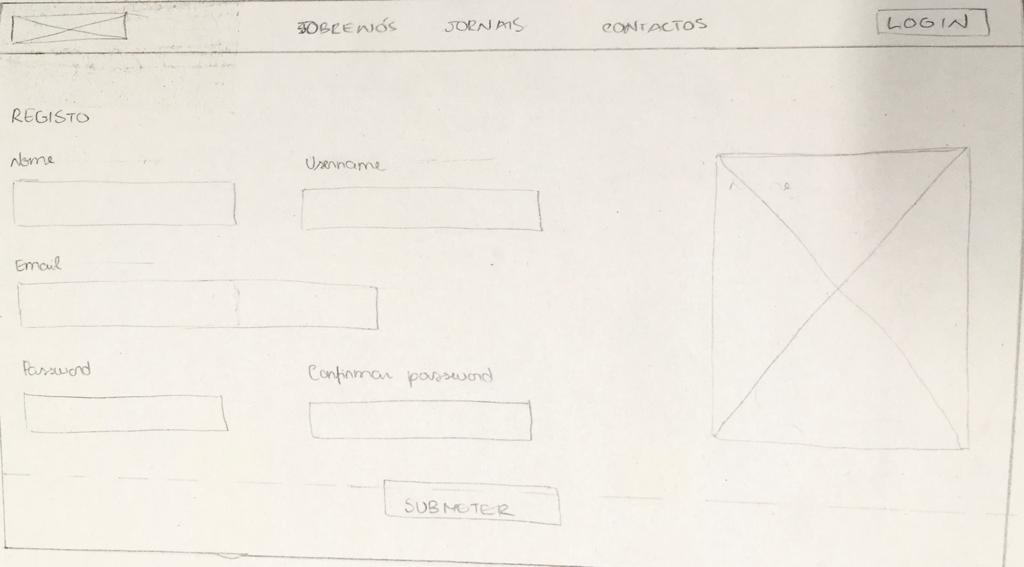 SOBRE NÓS JORNAIS CONTACTOS LOGIN
REGISTO
Nome Username
Email
Password Confirmar password
SUBMETER